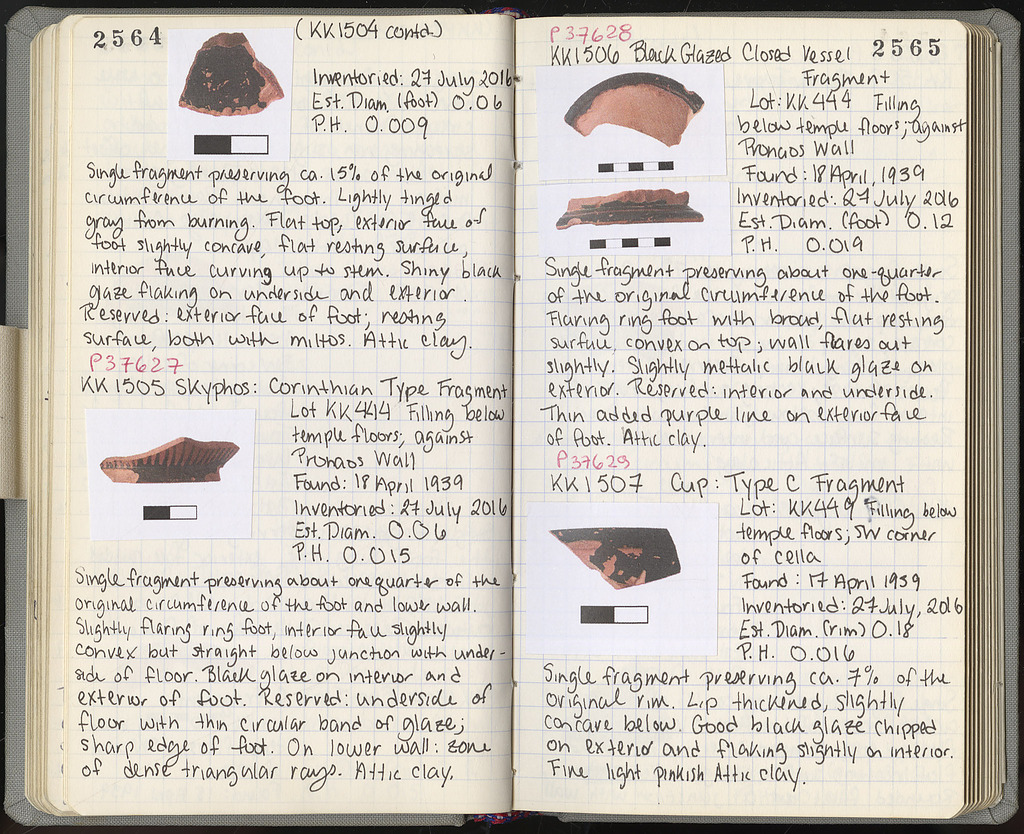 2564
(KK1504 contd.)
Inventoried: 27 July 2016
Est. Diam. (foot) 0.06
P.H. 0.009
Single fragment preserving ca. 15% of the original
circumference of the foot. Lightly tinged
gray from burning. Flat top, exterior face of
foot slightly concave, flat resting surface,
interior face curving up to stem. Shiny black
glaze flaking on underside and exterior.
Reserved: exterior face of foot; resting
surface, both with miltos. Attic clay.
P37627
KK1505 Skyphos: Corinthian Type Fragment
Lot KK444 Filling below
temple floors; against
Pronaos Wall
Found: 18 April 1939
Inventoried: 27 July 2016
Est. Diam. 0.06
P.H. 0.015
Single fragment preserving about one quarter of the
original circumference of the foot and lower wall.
Slightly flaring ring foot, interior face slightly
convex but straight below junction with under-
side of floor. Black glaze on interior and
exterior of foot. Reserved: underside of
floor with thin circular band of glaze;
sharp edge of foot. On lower wall: zone
of dense triangular rays. Attic clay.
P37628
KK1506 Black Glazed Closed Vessel
2565
Fragment
Lot: KK444 Filling
below temple floors; against
Pronaos Wall
Found: 18 April, 1939
Inventoried: 27 July 2016
Est. Diam. (foot) 0.12
P.H. 0.019
Single fragment preserving about one-quarter
of the original circumference of the foot.
Flaring ring foot with broad, flat resting
surface, convex on top; wall flares out
slightly. Slightly mettalic black glaze on
exterior. Reserved: interior and underside.
Thin added purple line on exterior face
of foot. Attic clay.
P37629
KK1507 Cup: Type C Fragment
Lot: KK449 Filling below
temple floors; SW corner
of cella
Found: 17 April 1939
Inventoried: 27 July, 2016
Est. Diam. (rim) 0.18
P.H. 0.016
Single fragment preserving ca. 7% of the
original rim. Lip thickened, slightly
concave below. Good black glaze chipped
on exterior and flaking slightly on interior.
Fine light pinkish Attic clay.